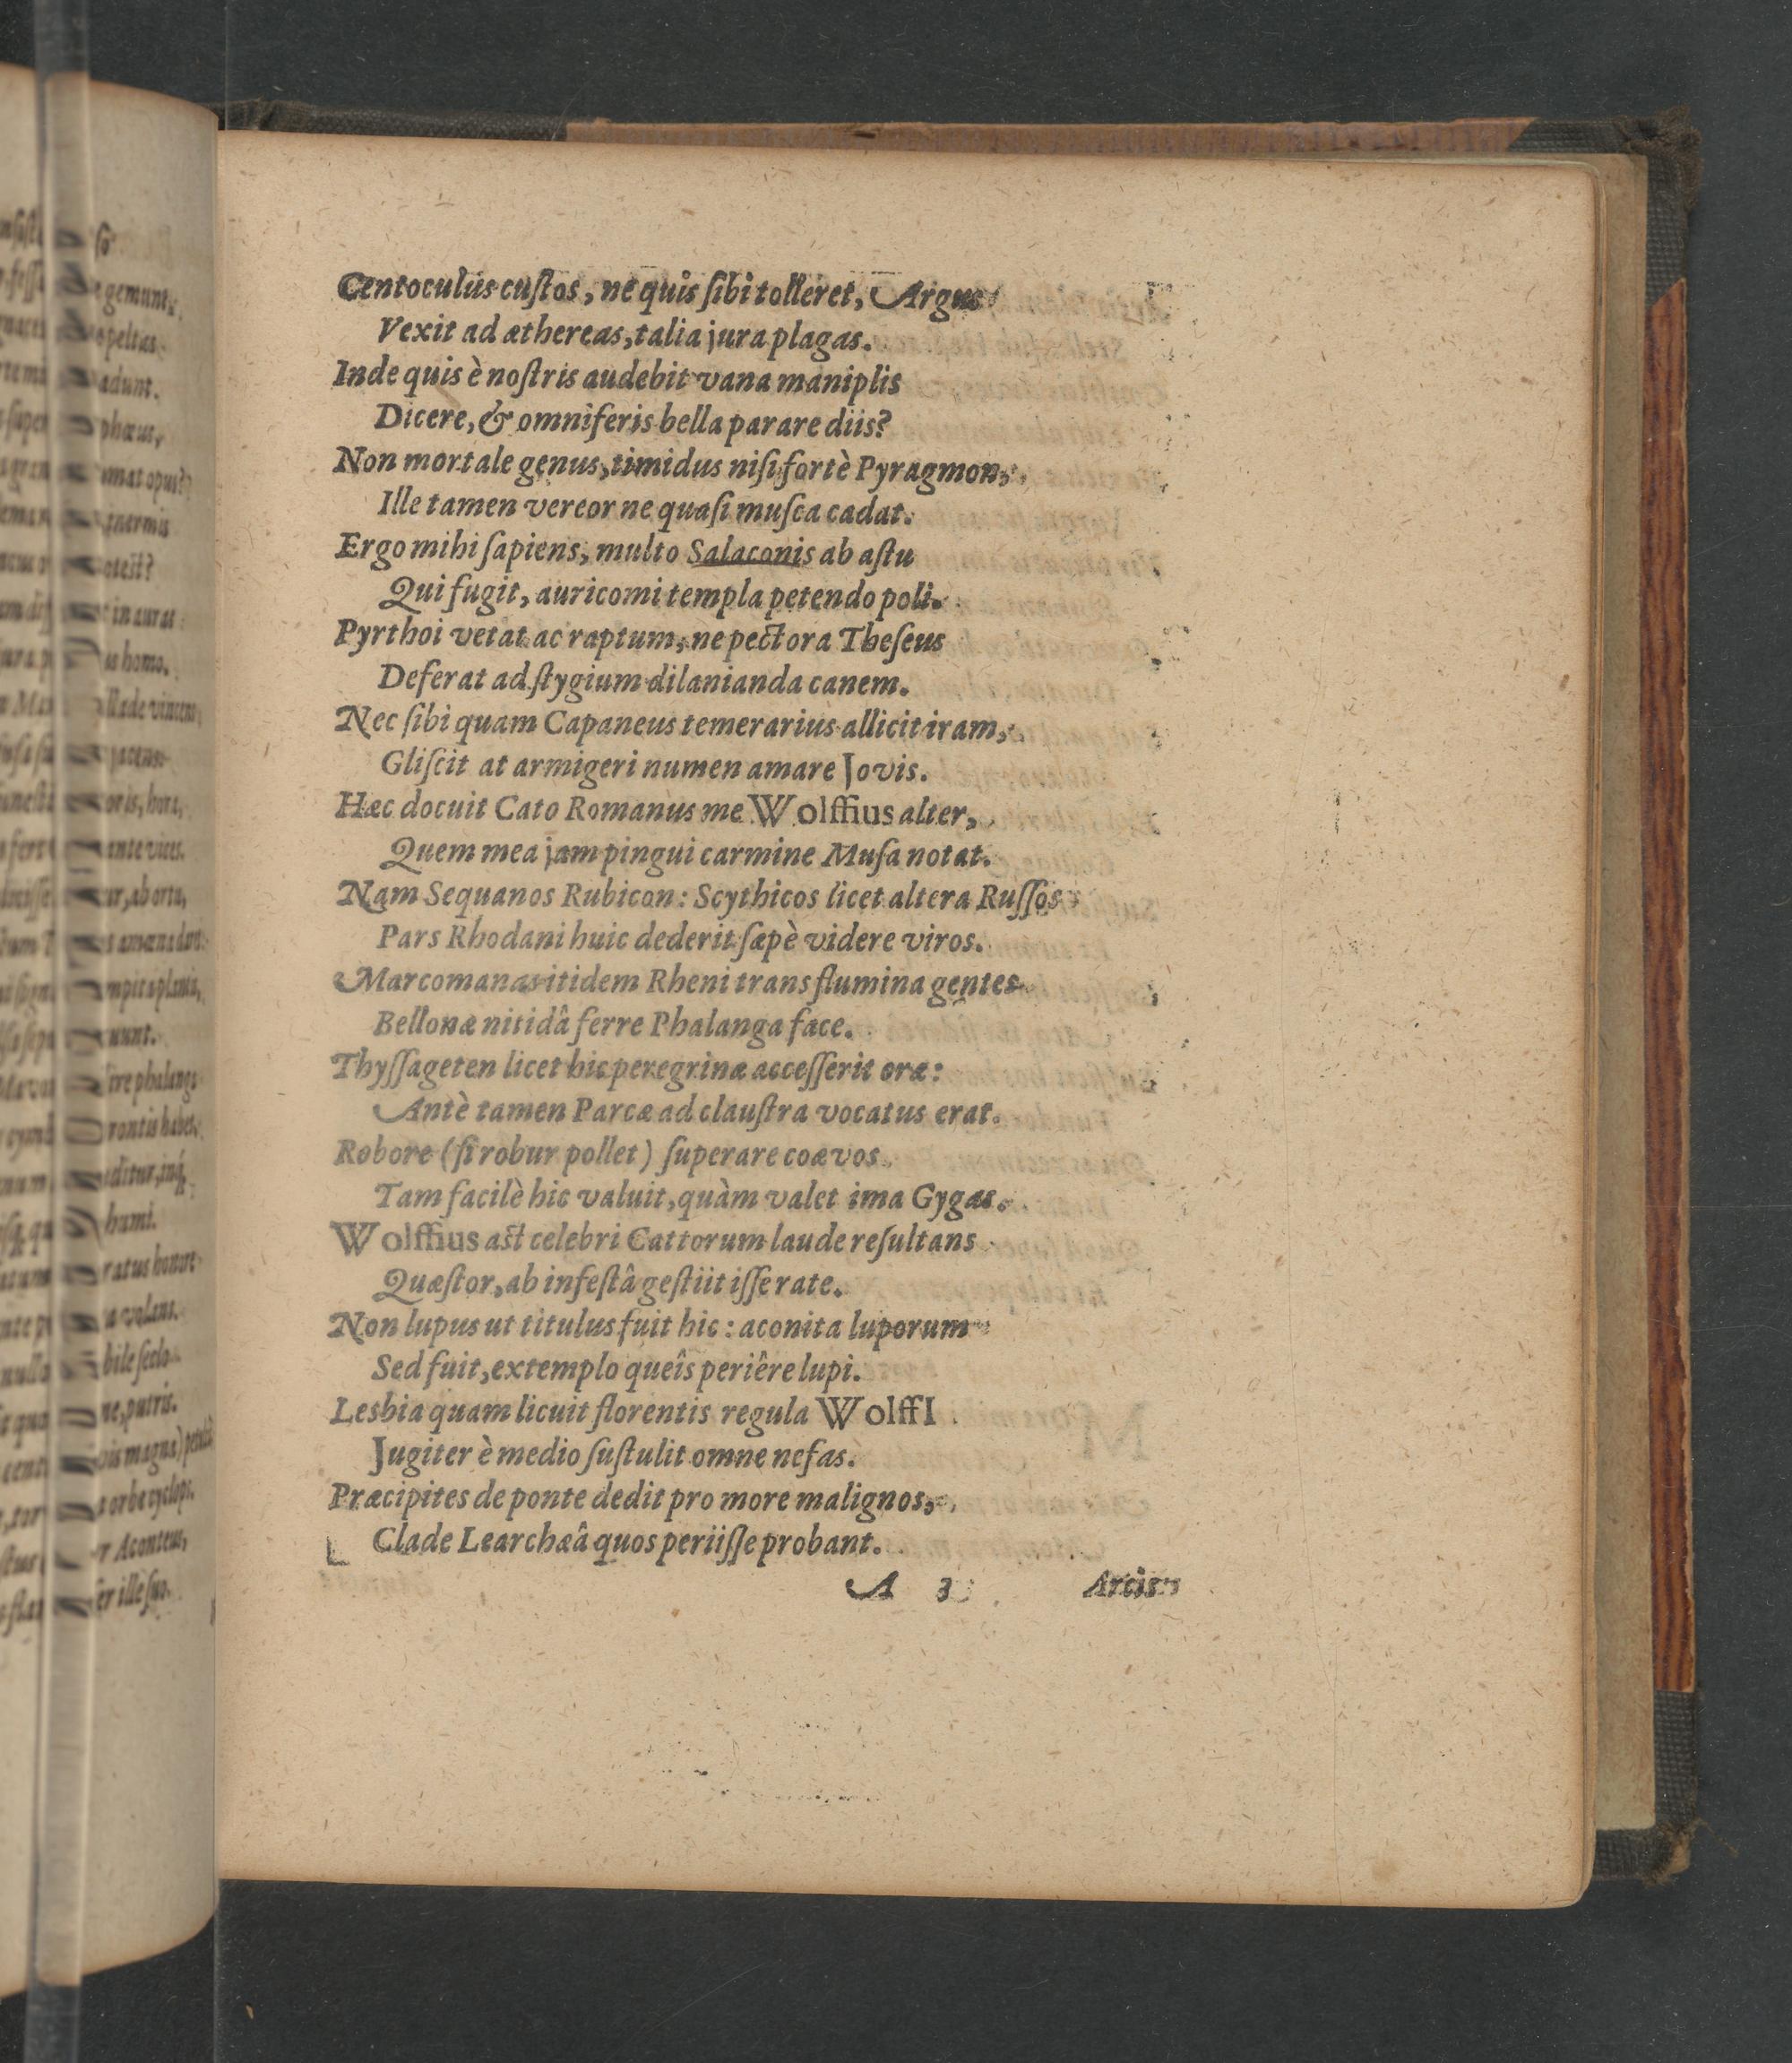 Centoculus custos, ne quis ſibi tolleret, Argus
Vexit ad æthereas, talia jura plagas.
Inde quis è noſtris audebit vana maniplis
Dicere, & omniferis bella parare diis?
Non mortale genus, timidus niſi fortè Pyragmon,
Ille tamen vereor ne quaſi muſca cadat.
Ergo mihi ſapiens, multo Salaconis ab aſtu
Qui fugit, auricomi templa petendo poli.
Pyrthoi vetat ac raptum, ne pectora Theſeus
Deferat ad ſtygium dilanianda canem.
Nec ſibi quam Capaneus temerarius allicit iram,
Gliſcit at armigeri numen amare Jovis.
Hæc docuit Cato Romanus me Wolffius alter,
Quem mea jam pingui carmine Muſa notat.
Nam Sequanos Rubicon: Scythicos licet altera Ruſſos
Pars Rhodani huic dederit ſæpè videre viros.
Marcomanas itidem Rheni trans flumina gentes
Bellonæ nitidâ ferre Phalanga face.
Thyſſageten licet hic peregrinæ acceſſerit oræ:
Antè tamen Parcæ ad clauſtra vocatus erat.
Robore (ſi robur pollet) ſuperare coævos
Tam facilè hic valuit, quàm valet ima Gygas.
Wolffius aſt celebri Cattorum laude reſultans
Quæſtor, ab infeſtâ geſtiit iſſe rate.
Non lupus ut titulus fuit hic: aconita luporum
Sed fuit, extemplo queîs periêre lupi.
Lesbia quam licuit florentis regula WolffI
Jugiter è medio ſuſtulit omne nefas.
Præcipites de ponte dedit pro more malignos,
Clade Learchæâ quos periiſſe probant.
A 3 Arcis